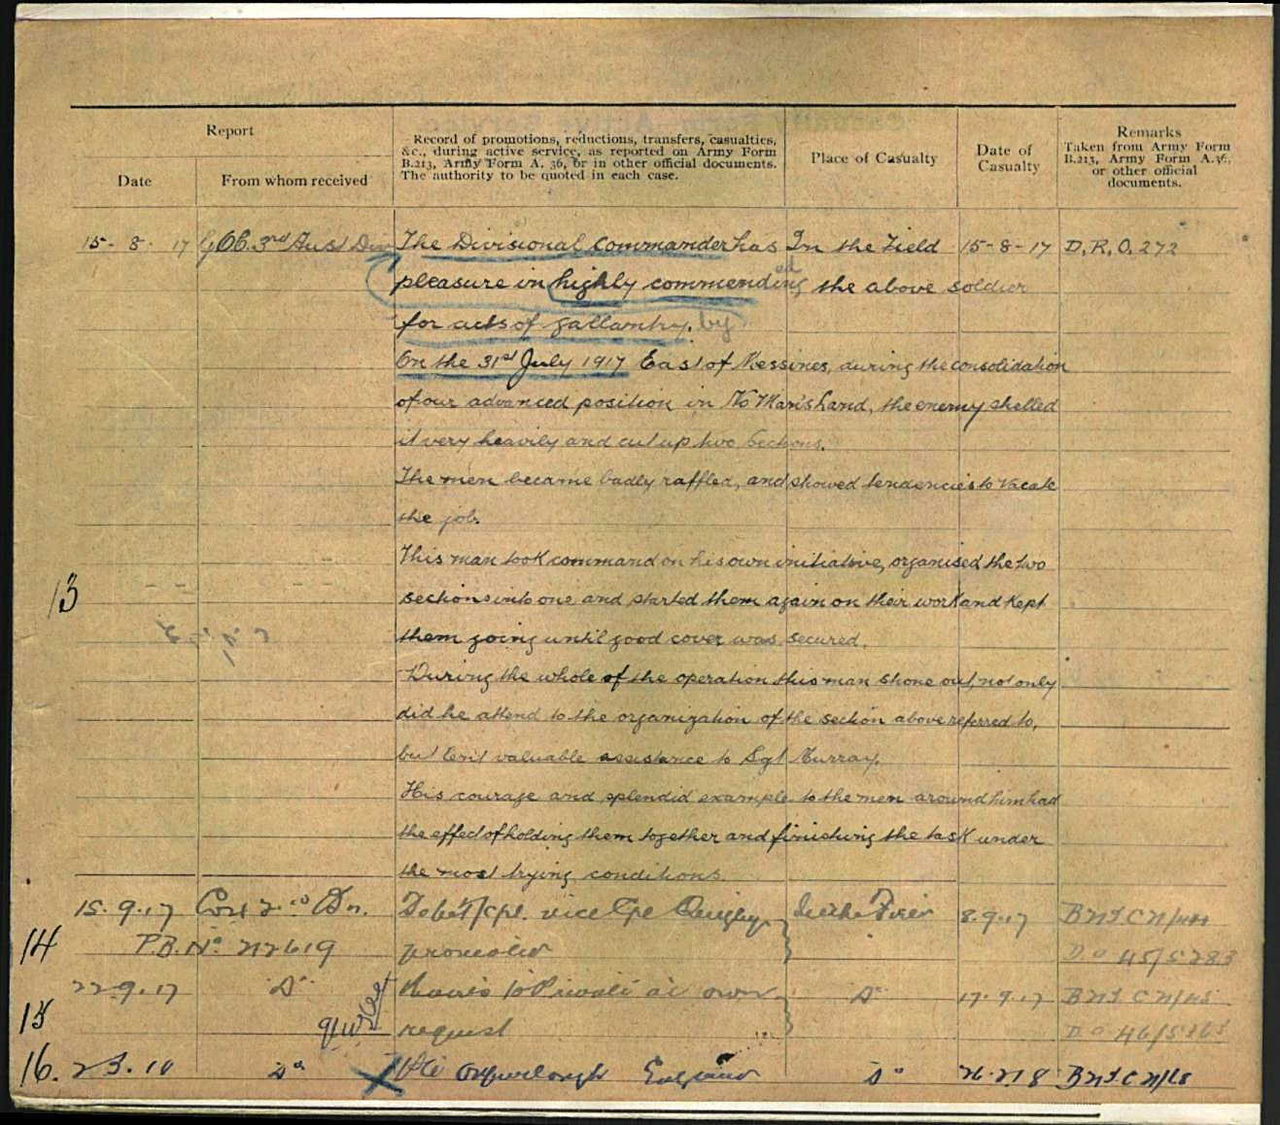 Report
Date
From whom received
Record of promotions, reductions, transfers, casualties,
&c., during active service, as reported on Army Form
B.213, Army Form A. 36, or in other official documents.
The authority to be quoted in each case.
Place of Casualty
Date of
Casualty
Remarks
Taken from Army Form
B.213, Army Form A.36,
or other official
documents.
15-8-17 GOC. 3rd Aust Div The Divisional Commander has In the Field 15-8-17 D.R.O. 272
pleasure in highly commending the above soldier
for acts of gallantry. by
On the 31st July 1917 East of Messines, during the consolidation
of our advanced position in No Man's Land, the enemy shelled
it very heavily and cut up two Sections.
The men became badly raffled, and showed tendencies to vacate
the job.
This man took command on his own initiative, organised the two
13
sections into one and started them again on their work and kept
them going until good cover was secured.
During the whole of the operation this man shone out, not only
did he attend to the organization of the section above referred to,
but lent valuable assistance to Sgt Murray.
His courage and splendid example to the men around him had
the effect of holding them together and finishing the task under
the most trying conditions.
15.9.17 Bn. To be T/Cpl. vice Cpl Quigley 8.9.17
14 promoted
22.9.17 Do Reverts to Private at own Do 17.9.17
15 request
16. Do England Do